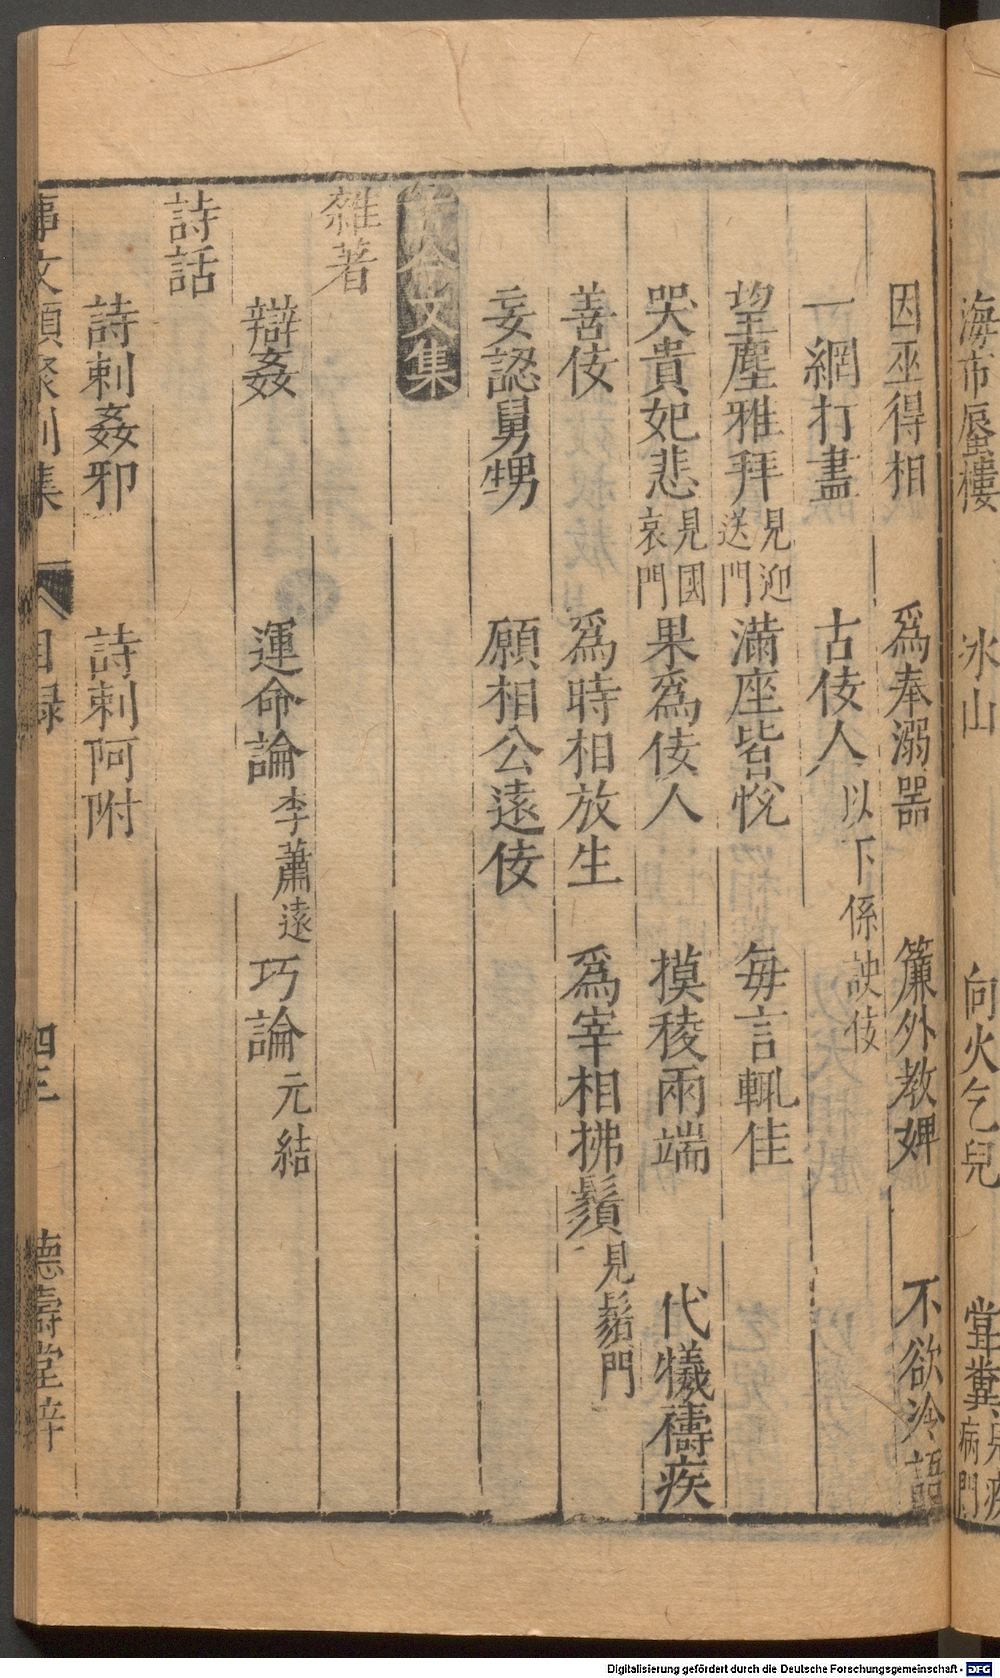 海市蜃樓 氷山 向火乞兒 甞糞
病門
因巫得相 爲奉溺器 簾外教婢 不欲泠語
一網打盡 古佞人以下係諛佞
望塵雅拜見迎送門 滿座皆悅 每言輒佳
哭貴妃悲見國哀門 果爲佞人 摸稜兩端 代犧禱疾
善佞 爲時相放生 爲宰相拂鬚見鬚門
妄認舅甥 願相公遠佞
古今文集
雜著
辯姦 運命論李蕭遠 巧論元結
詩話
詩刺姦邪 詩刺阿附
事文類聚別集 目録 四三 德壽堂梓
Digitalisierung gefördert durch die Deutsche Forschungsgemeinschaft - DFG